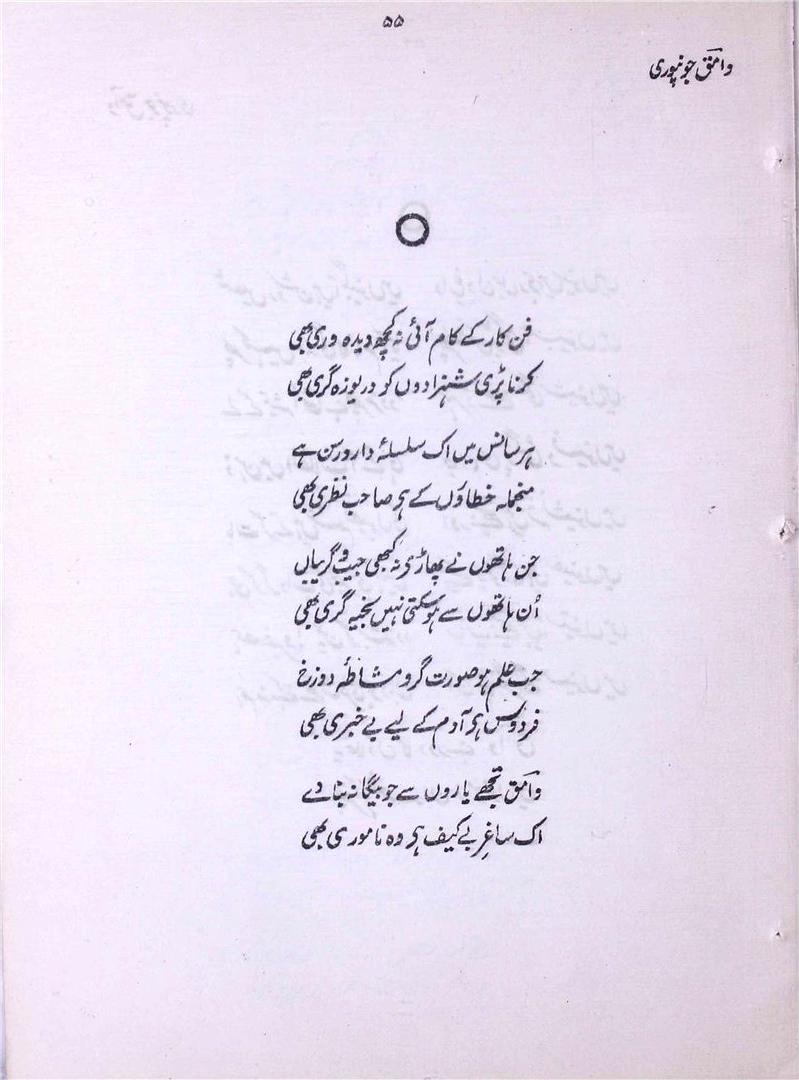 ۵۵
وامق جونپوری
فن کار کے کام آئی نہ کچھ دیدہ وری بھی
کرنا پڑی شہزادوں کو دریوزہ گری بھی
ہر سانس میں اک سلسلۂ دار و رسن ہے
منجملہ خطاؤں کے ہے صاحب نظری بھی
جن ہاتھوں نے پھاڑی نہ کبھی جیب و گریباں
اُن ہاتھوں سے ہو سکتی نہیں بخیہ گری بھی
جب علم ہو صورت گر و مشاطۂ دوزخ
فردوس ہے آدم کے لیے بے خبری بھی
وامق تجھے یاروں سے جو بیگانہ بنا دے
اک ساغرِ بے کیف ہے وہ ناموری بھی